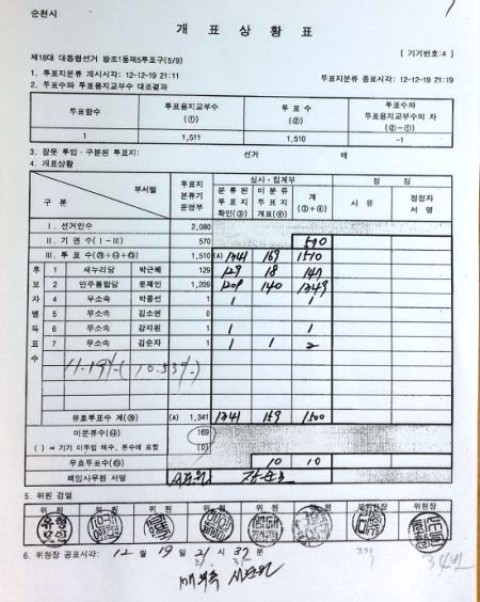 순천시
개 표 상 황 표
[ 기기번호:4 ]
제18대 대통령선거 왕조1동제5투표구(5/9)
1. 투표지분류 개시시각: 12-12-19 21:11 투표지분류 종료시각: 12-12-19 21:19
2. 투표수와 투표용지교부수 대조결과
투표함수 투표용지교부수 (①) 투 표 수 (②) 투표수와 투표용지교부수의 차 (②-①)
1 1,511 1,510 -1
3. 잘못 투입·구분된 투표지: 선거 매
4. 개표상황
구 분 부서별 투표지 분류기 운영부 심사·집계부 정 정
분 류 된 투 표 지 확인(③) 미 분 류 투 표 지 개표(④) 계 (③+④) 사 유 정정자 서 명
Ⅰ. 선거인수 2,080
Ⅱ. 기 권 수(Ⅰ-Ⅲ) 570 570
Ⅲ. 투 표 수 1,510 (A) 1341 169 1510
후보자별득표수
1 새누리당 박근혜 129 129 18 147
2 민주통합당 문재인 1,209 1209 140 1349
4 무소속 박종선 1 1 1
5 무소속 김소연 0
6 무소속 강지원 1 1 1
7 무소속 김순자 1 1 1 2
11.19%( 10.53%)
유효투표수 계 (A) 1,341 1341 159 1500
미분류수 169
( ) ⇒ 기기 미투입 매수, 본수에 포함 (0)
무효투표수 10 10
책임사무원 서명
5. 위원 검열
위 원 위 원 위 원 위 원 위 원 위 원 부위원장 위원장
6. 위원장 공표시각: 12 월 19 일 21 시 37 분